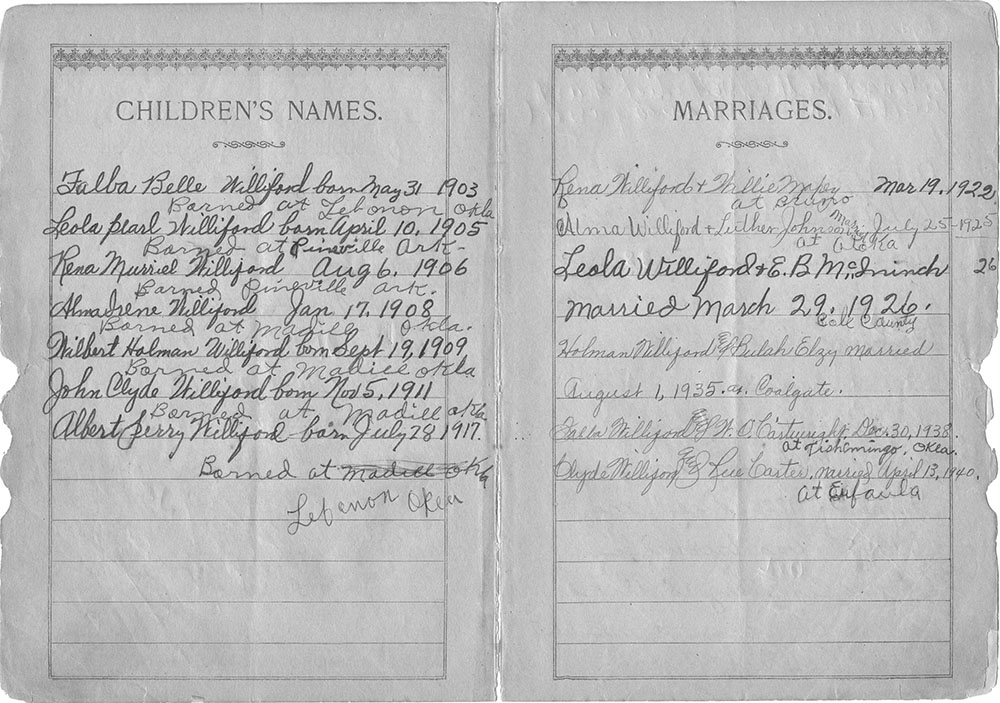 CHILDREN'S NAMES.
Falba Belle Williford born May 31 1903
Borned at Lebonon Okla
Leola pearl Williford born April 10, 1905
Borned at Pineville Ark-
Rena Murriel Williford Aug 6, 1906
Borned Pineville Ark.
Alma Irene Williford Jan 17, 1908
Borned at Madill Okla.
Wilbert Holman Williford born Sept 19, 1909
Borned at Madill Okla
John Clyde Williford born Nov 5, 1911
Borned at Madill Okla
Albert Jerry Williford born July 28 1917.
Borned at Madill Okla
Lebenon Okla
MARRIAGES.
Rena Williford & Willie Mar 19, 1922
at
Alma Williford & Luther Johnson July 25-1925
at Atoka
Leola Williford & E. B. McIninch 26
married March 29, 1926.
Cole County
Holman Williford & Bulah Elzy married
August 1, 1935. at Coalgate.
Falba Williford & W. O. Cartwright Dec. 30, 1938.
at Tishomingo, Okla.
Clyde Williford & Lue Carter, married April 13, 1940.
at Eufaula